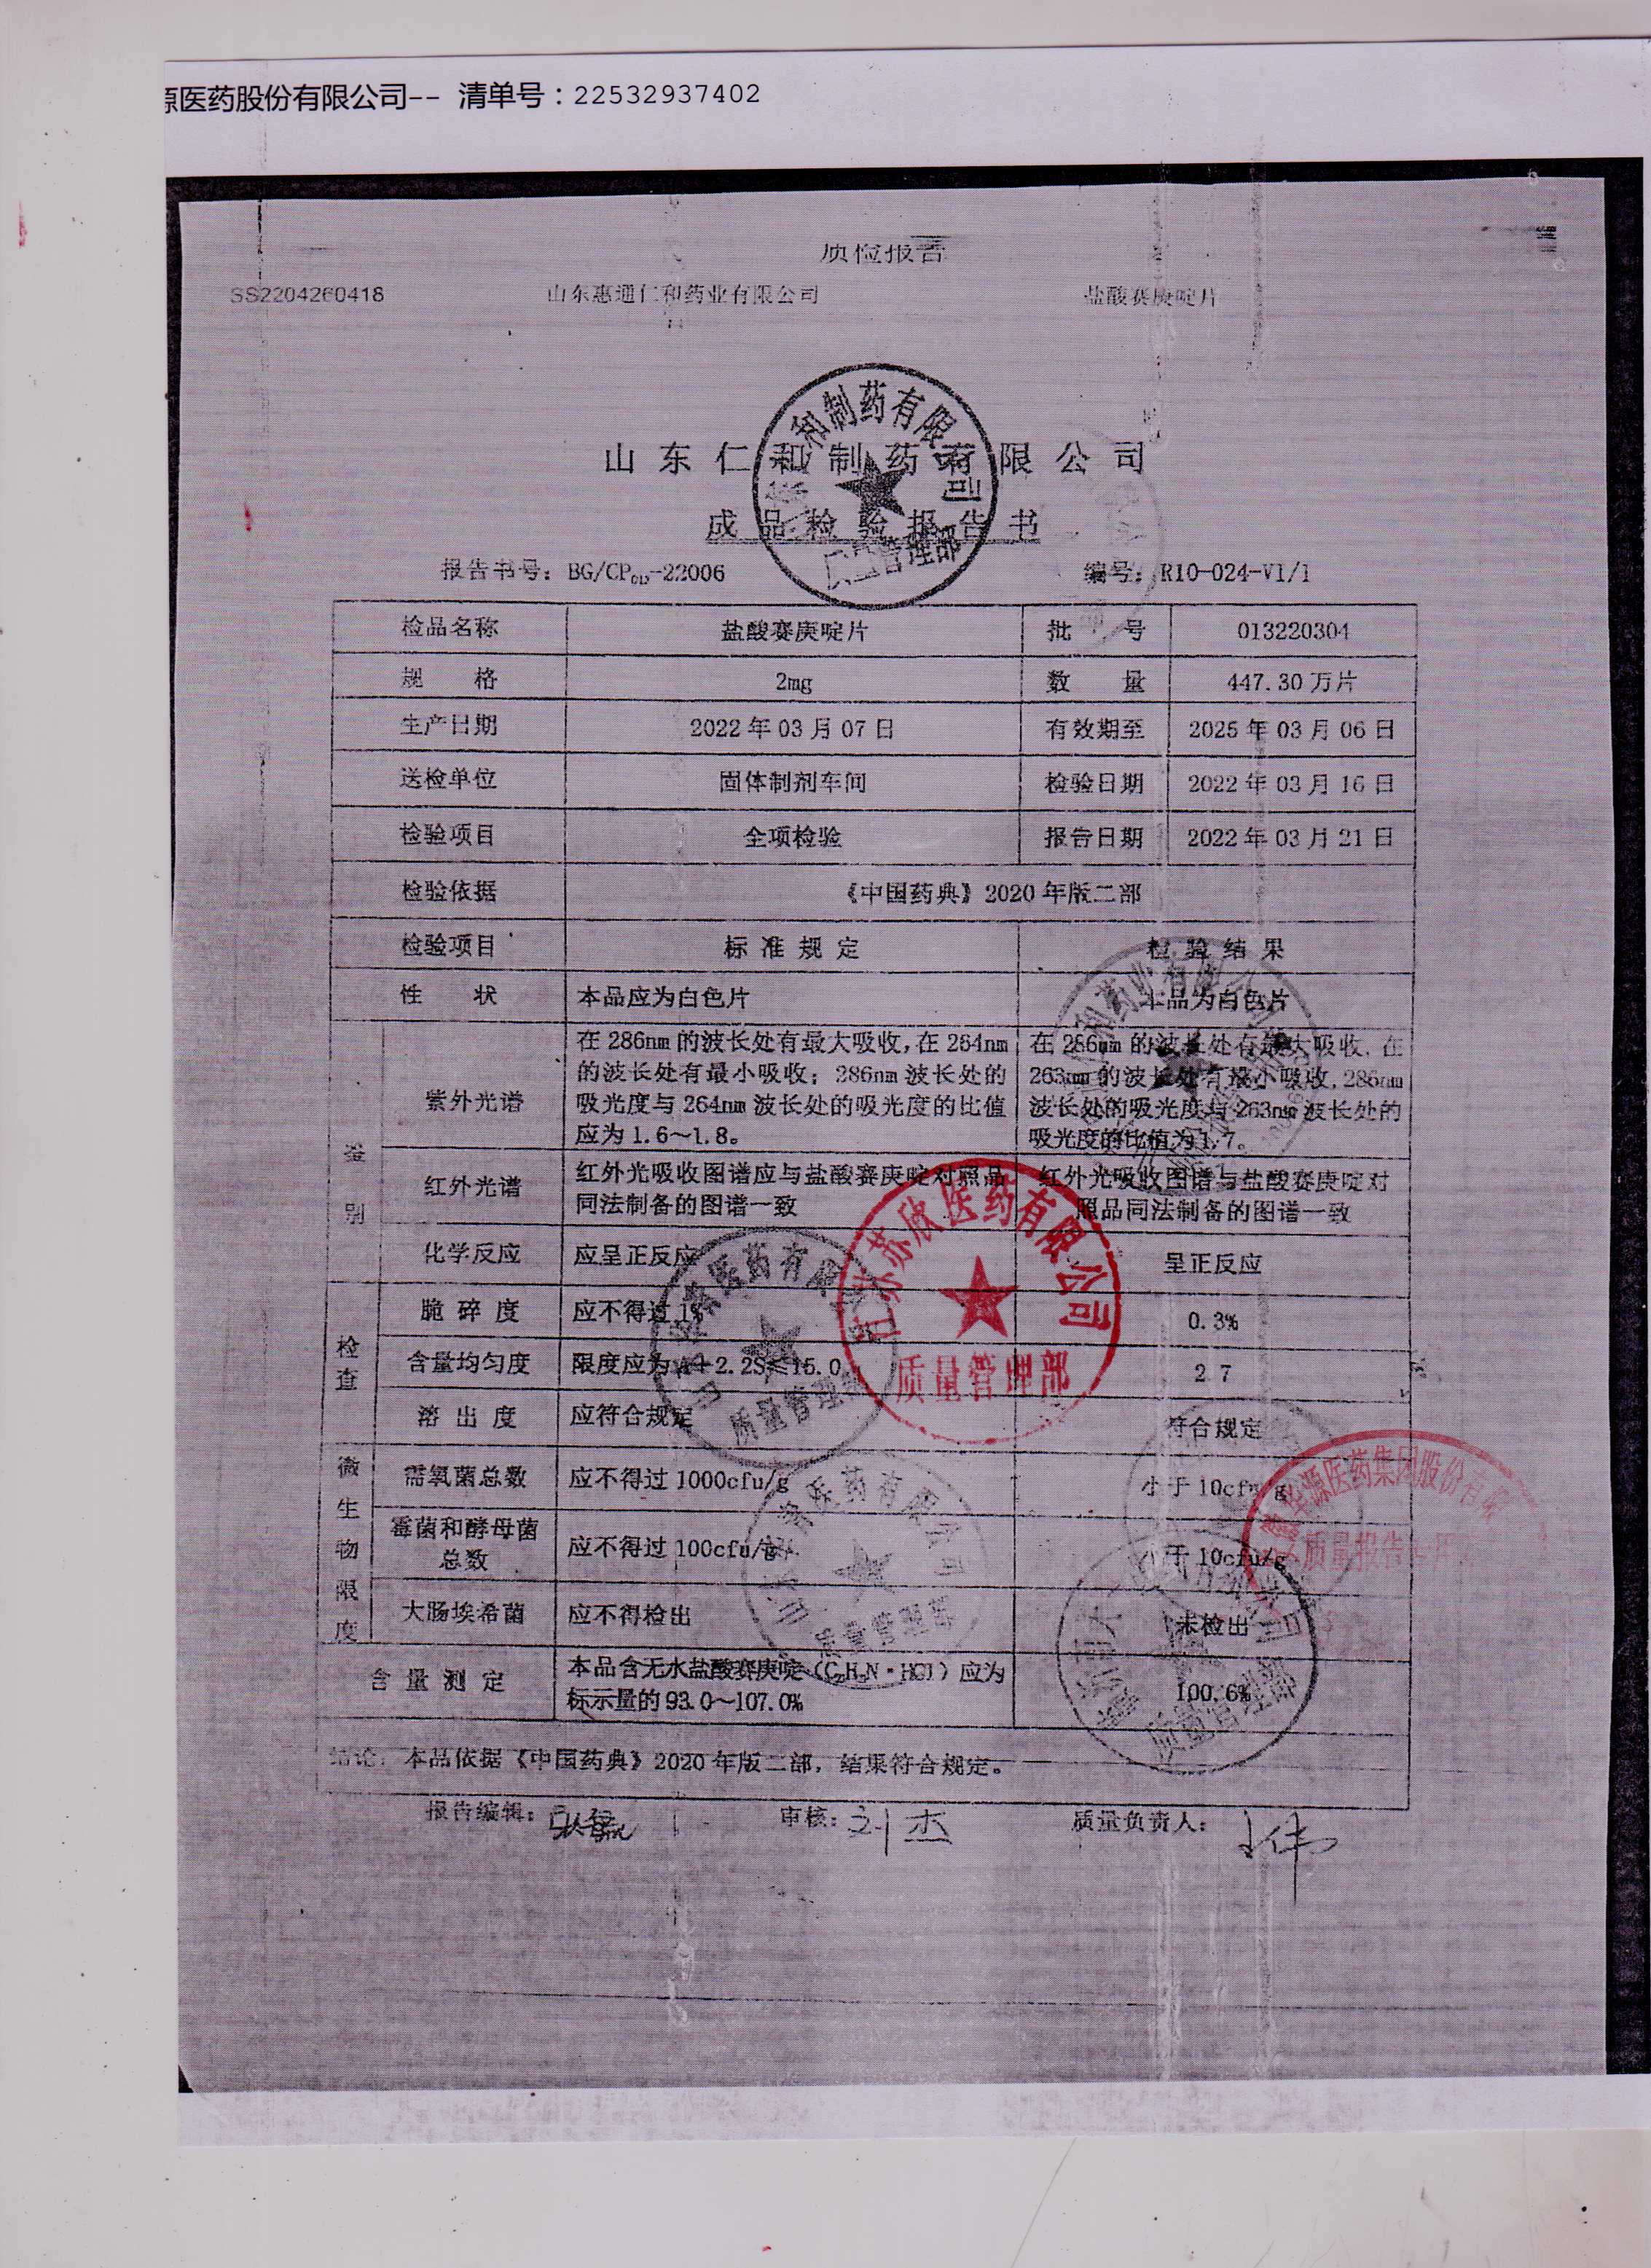 源医药股份有限公司-- 清单号：22532937402
质检报告
SS2204260418 山东惠通仁和药业有限公司 盐酸赛庚啶片
山东仁和制药有限公司
成品检验报告书
质量管理部
报告书号：BG/CP₀₁₃-22006 编号：R10-024-V1/1
检品名称 盐酸赛庚啶片 批 号 013220304
规 格 2mg 数 量 447.30 万片
生产日期 2022 年 03 月 07 日 有效期至 2025 年 03 月 06 日
送检单位 固体制剂车间 检验日期 2022 年 03 月 16 日
检验项目 全项检验 报告日期 2022 年 03 月 21 日
检验依据 《中国药典》2020 年版二部
检验项目 标 准 规 定 检 验 结 果
性 状 本品应为白色片 本品为白色片
鉴别
紫外光谱
在 286nm 的波长处有最大吸收，在 264nm
的波长处有最小吸收；286nm 波长处的
吸光度与 264nm 波长处的吸光度的比值
应为 1.6～1.8。
在 286nm 的波长处有最大吸收，在
263nm 的波长处有最小吸收，286nm
波长处的吸光度与 263nm 波长处的
吸光度的比值为 1.7。
红外光谱
红外光吸收图谱应与盐酸赛庚啶对照品
同法制备的图谱一致
红外光吸收图谱与盐酸赛庚啶对
照品同法制备的图谱一致
化学反应 应呈正反应 呈正反应
检查
脆 碎 度 应不得过 1% 0.3%
含量均匀度 限度应为 A+2.2S≤15.0 2.7
溶 出 度 应符合规定 符合规定
微生物限度
需氧菌总数 应不得过 1000cfu/g 小于 10cfu/g
霉菌和酵母菌
总数
应不得过 100cfu/g 小于 10cfu/g
大肠埃希菌 应不得检出 未检出
含 量 测 定
本品含无水盐酸赛庚啶（ ）应为
标示量的 93.0～107.0%
100.6%
结论：本品依据《中国药典》2020 年版二部，结果符合规定。
报告编辑： 审核：刘杰 质量负责人：
江苏欣医药有限公司
质量管理部
源医药集团股份有限
质量报告专用
质量管理部
质量管理部
质量管理部